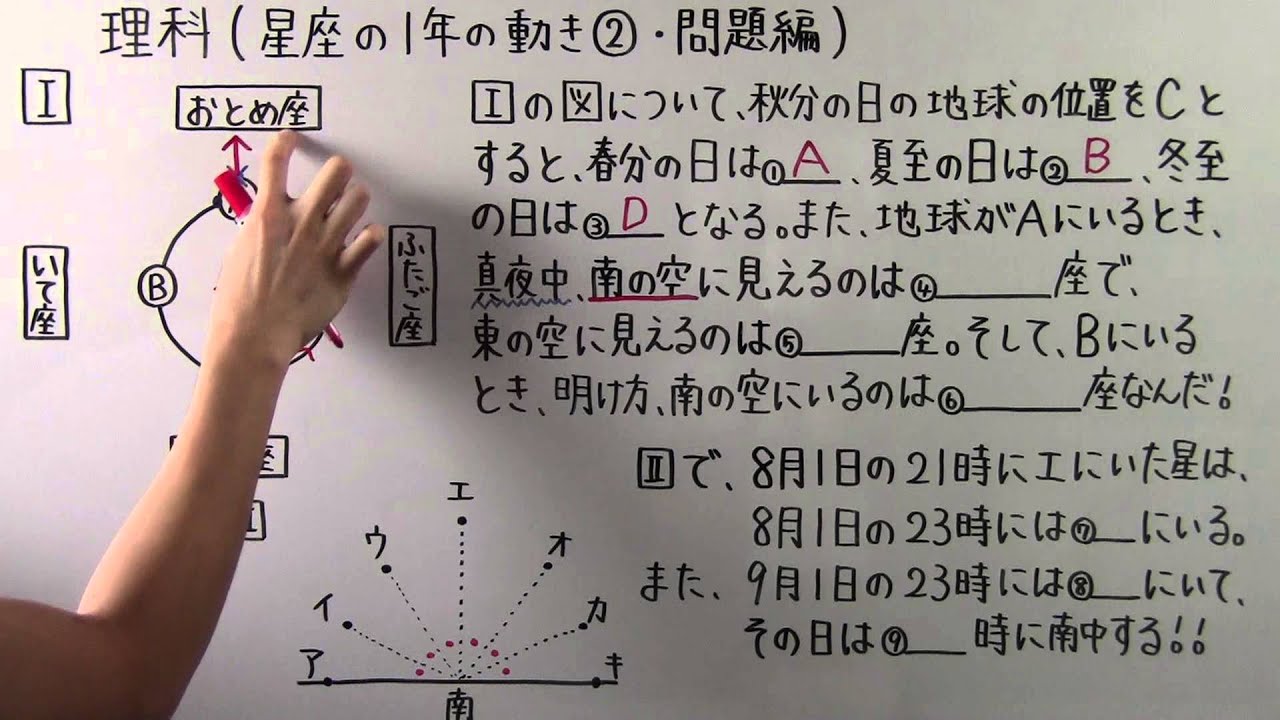 理科(星座の1年の動き②・問題編)
Ⅰ
おとめ座
いて座
B
ふたご座
座
Ⅰの図について、秋分の日の地球の位置をCと
すると、春分の日は①A、夏至の日は②B、冬至
の日は③Dとなる。また、地球がAにいるとき、
真夜中、南の空に見えるのは④___座で、
東の空に見えるのは⑤___座。そして、Bにいる
とき、明け方、南の空にいるのは⑥___座なんだ!
Ⅱで、8月1日の21時にエにいた星は、
8月1日の23時には⑦__にいる。
また、9月1日の23時には⑧__にいて、
その日は⑨__時に南中する!!
ア
イ
ウ
エ
オ
カ
キ
南